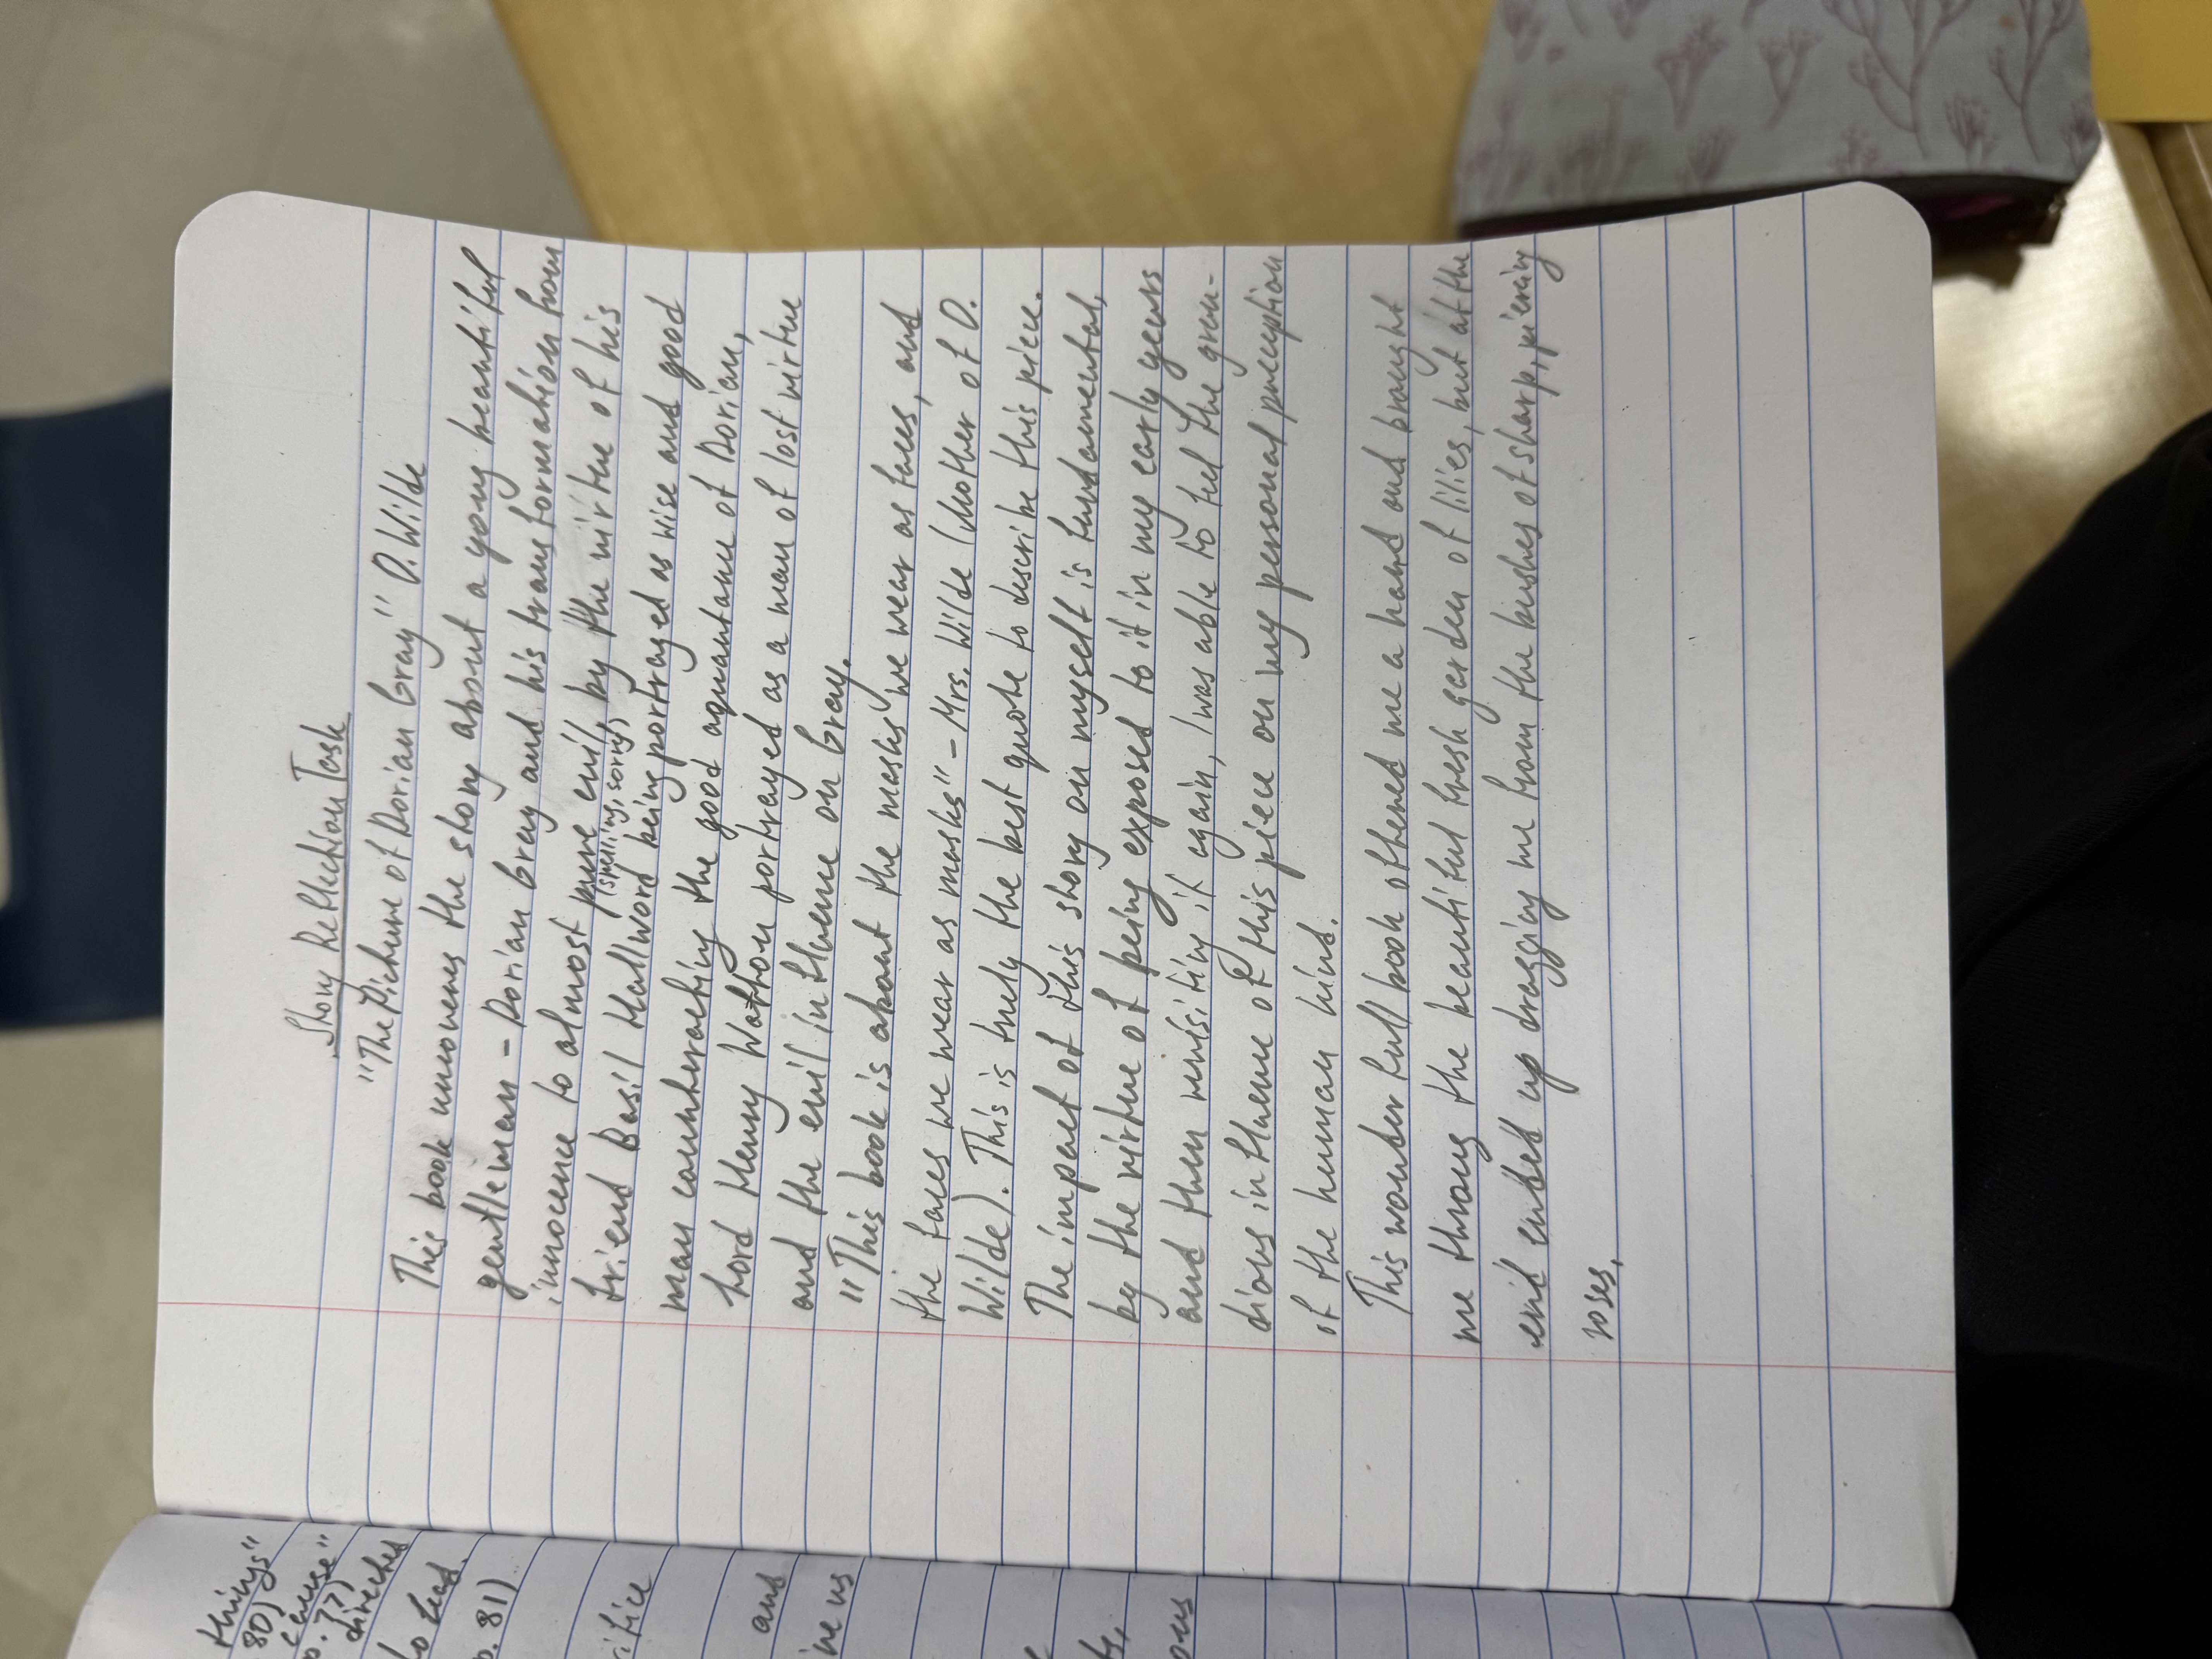 Story Reflection Task
"The Picture of Dorian Gray" O. Wilde
This book uncovers the story about a yong beautiful
gentleman - Dorian Gray and his transformation from
innocence to almost pure evil, by the virtue of his
(spelling, sorry)
friend Basil Hallword being portrayed as wise and good
man counteracting the good aquantane of Dorian,
Lord Henry Wotton portrayed as a man of lost virtue
and the evil influence on Gray.
"This book is about the masks we wear as faces, and
the faces we wear as masks" - Mrs. Wilde (Mother of O.
Wilde). This is truly the best quote to describe this piece.
The impact of this story on myself is fundamental,
by the virtue of being exposed to it in my early years
and then revisiting it again, I was able to feel the gran-
dious influence of this piece on my personal perception
of the human kind.
This wonder full book offered me a hand and brought
me throug the beautiful fresh garden of lilies, but at the
end ended up dragging me from the bushes of sharp, piercing
roses.
things"
80)
cause"
p. 77)
directed
to lead.
p. 81)
and
ous